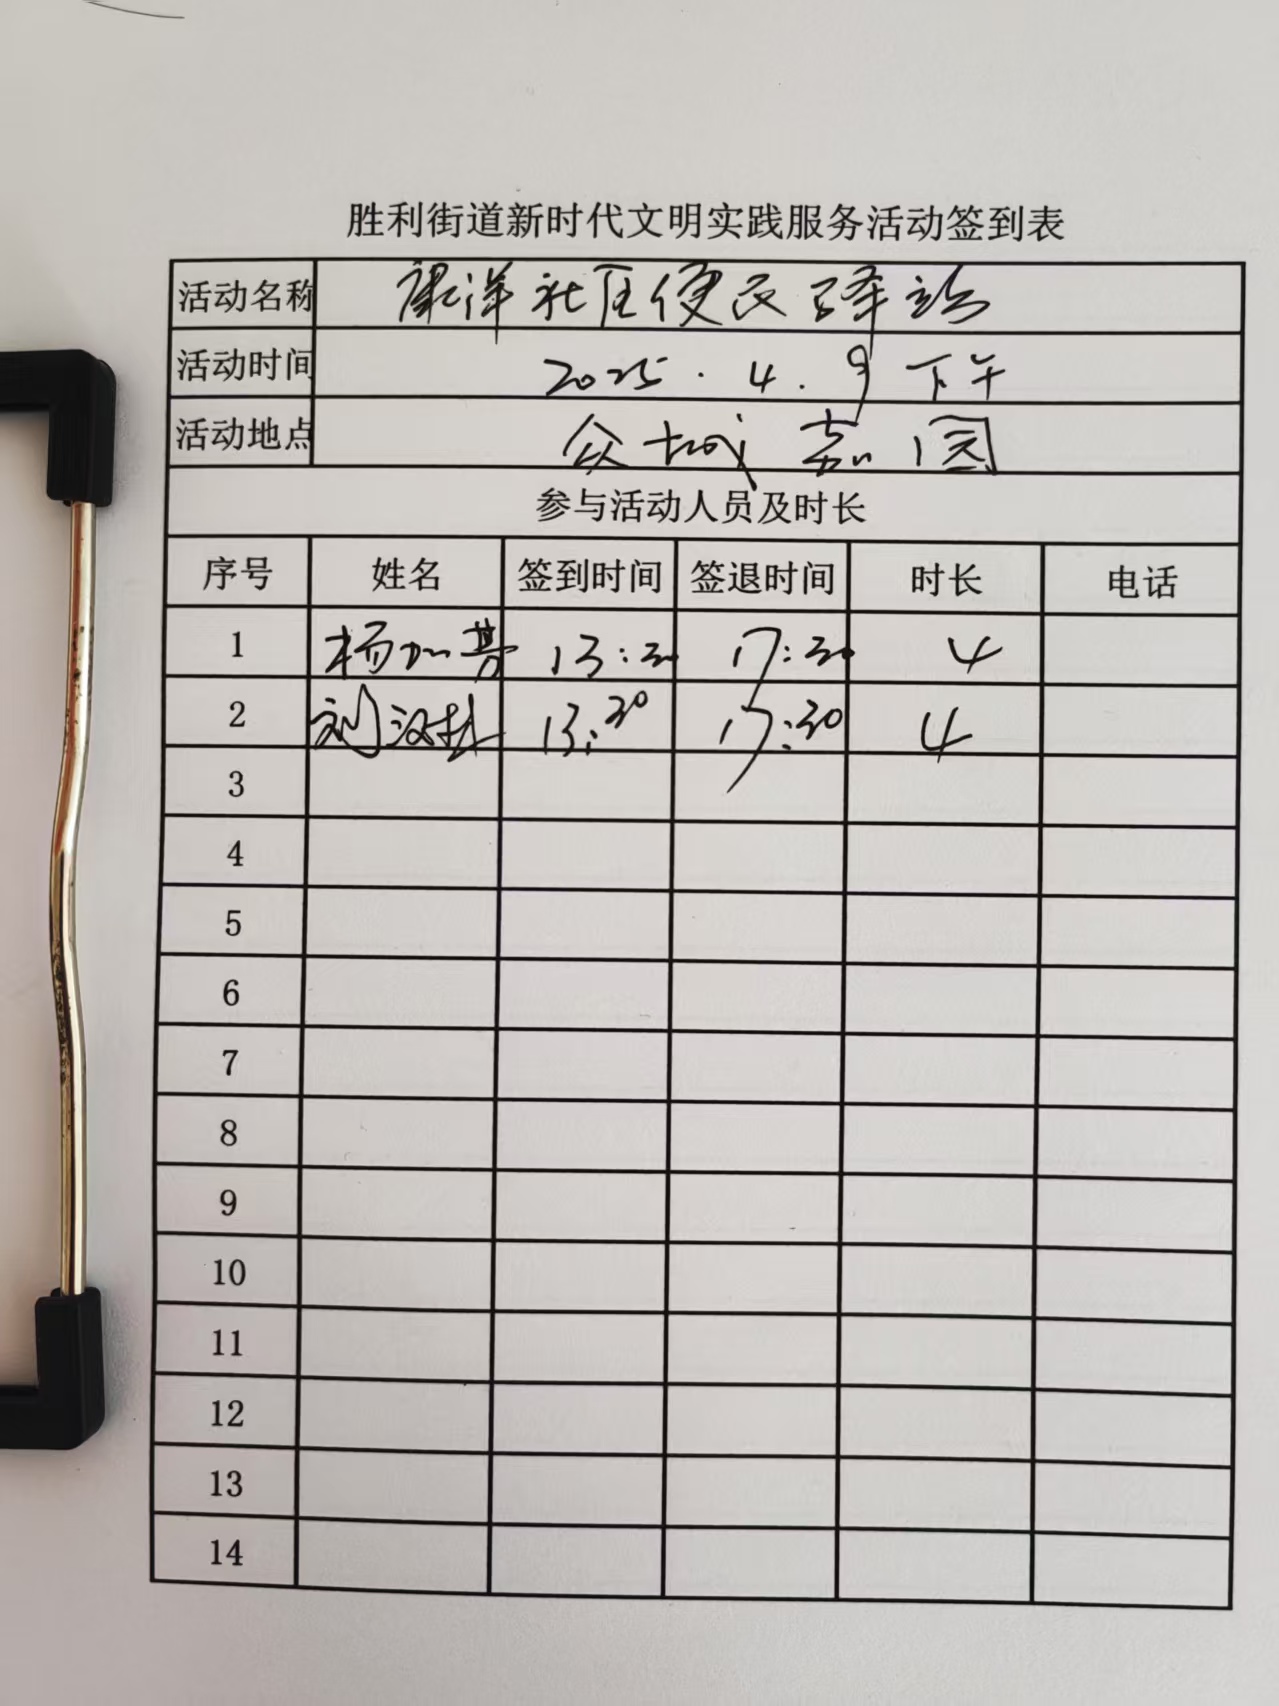 胜利街道新时代文明实践服务活动签到表
活动名称 康洋社区便民驿站
活动时间 2025.4.9 下午
活动地点 众城嘉园
参与活动人员及时长
序号 姓名 签到时间 签退时间 时长 电话
1 杨加 13:30 17:30 4
2 刘汉 13:30 17:30 4
3
4
5
6
7
8
9
10
11
12
13
14